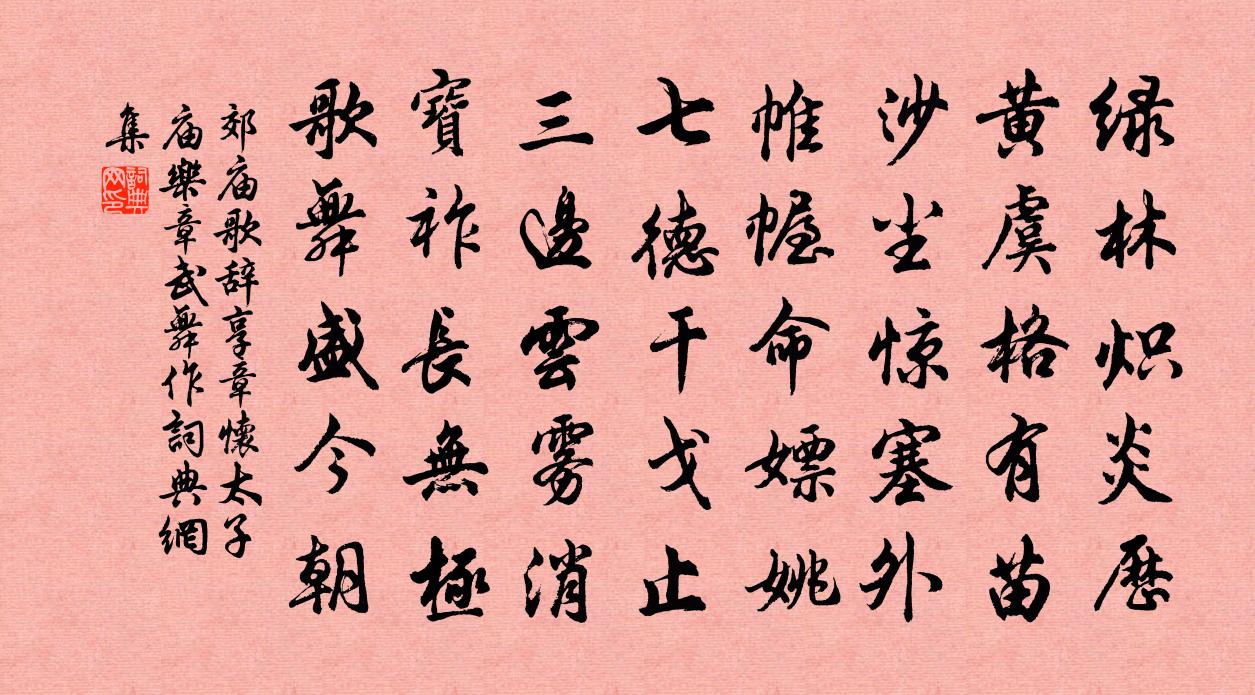 绿林炽炎历
黄虞格有苗
沙尘惊塞外
帷幄命嫖姚
七德干戈止
三邊雲雾消
寶祚長無極
歌舞盛今朝
郊庙歌辞享章懷太子
庙樂章武舞作詞典網
集
詞典网印